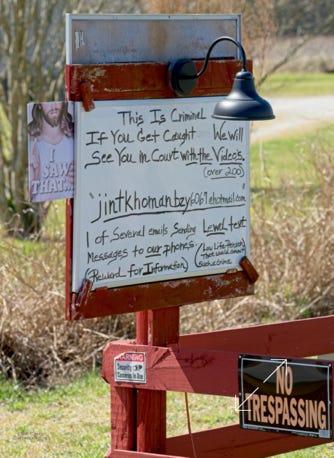 This Is Criminal
If You Get Caught We Will
See You In Court with the Videos.
(over 200)
"jintkhomanbzy6069@hotmail.com
1 of Several emails Sending Lewd text
Messages to our phones
(Reward For Information)
(Low Life Person
That would commit
Such a Crime
I SAW
THAT...
WARNING
Security
Cameras In Use
NO
TRESPASSING